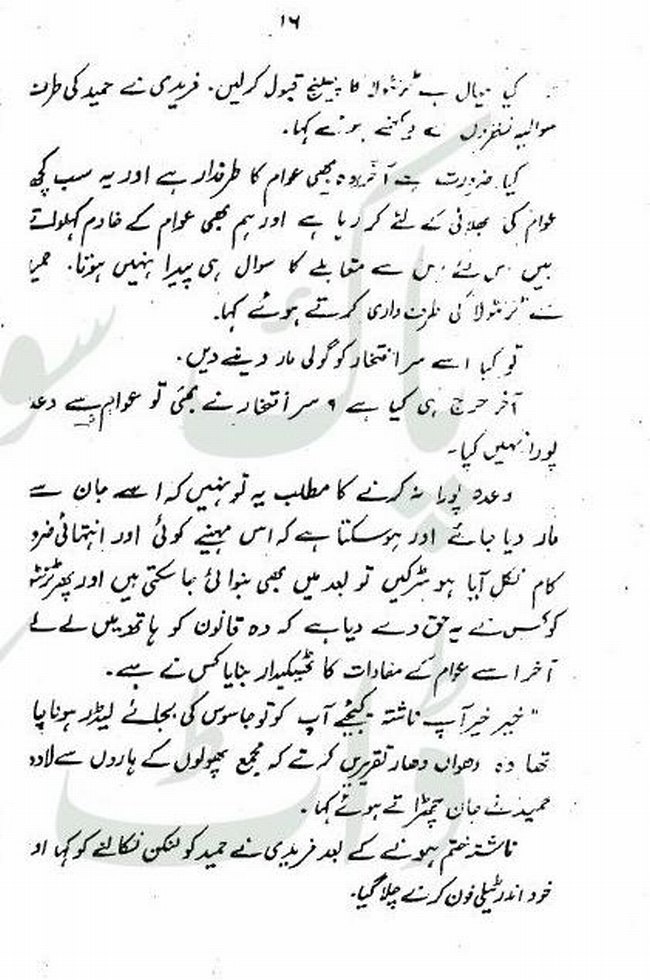 ۱۶
کیا خیال ہے ٹرنٹولا کا چیلنج قبول کرلیں۔ فریدی نے حمید کی طرف
سوالیہ نظروں سے دیکھتے ہوئے کہا۔
کیا ضرورت ہے آخر وہ بھی عوام کا طرفدار ہے اور یہ سب کچھ
عوام کی بھلائی کے لئے کر رہا ہے اور ہم بھی عوام کے خادم کہلواتے
ہیں اس لئے اس سے مقابلے کا سوال ہی پیدا نہیں ہوتا۔ حمید
نے ٹرنٹولا کی طرف داری کرتے ہوئے کہا۔
تو کیا اسے سر افتخار کو گولی مار دینے دیں۔
آخر حرج ہی کیا ہے ؟ سر افتخار نے بھی تو عوام سے وعدہ
پورا نہیں کیا۔
وعدہ پورا نہ کرنے کا مطلب یہ تو نہیں کہ اسے جان سے
مار دیا جائے اور ہوسکتا ہے کہ اس مہینے کوئی اور انتہائی
کام نکل آیا ہو سڑکیں تو بعد میں بھی بنوائی جا سکتی ہیں اور پھر
کو کس نے یہ حق دے دیا ہے کہ وہ قانون کو ہاتھ میں لے لے
آخر اسے عوام کے مفادات کا ٹھیکیدار بنایا کس نے ہے۔
"خیر خیر آپ ناشتہ کیجئے آپ کو تو جاسوس کی بجائے لیڈر ہونا چا
تھا وہ دھواں دھار تقریریں کرتے کہ مجمع پھولوں کے ہاروں سے لاد دے
حمید نے جان چھڑاتے ہوئے کہا۔
ناشتہ ختم ہونے کے بعد فریدی نے حمید کو لنکن نکالنے کو کہا او
خود اندر ٹیلی فون کرنے چلا گیا۔
پاک سو
ڈاٹ